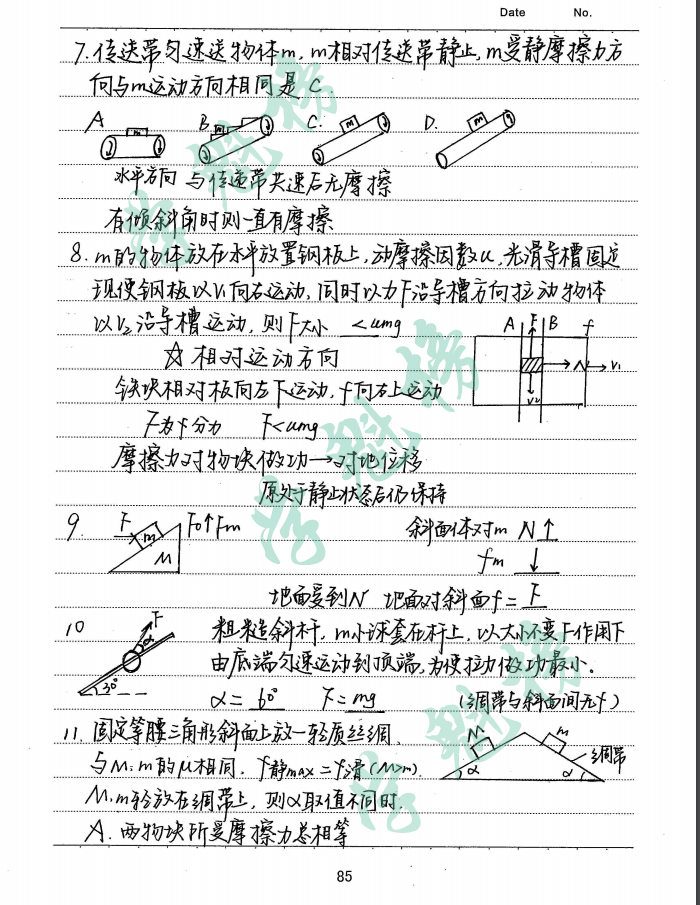 Date No.
7. 传送带匀速送物体m, m相对传送带静止, m受静摩擦力方
向与m运动方向相同是 C
A B C. D.
m m m m
水平方向 与传送带共速后无摩擦
有倾斜角时则一直有摩擦
8. m的物体放在水平放置钢板上, 动摩擦因数u, 光滑导槽固定
现使钢板以V₁向右运动, 同时以力F沿导槽方向拉动物体
以V₂沿导槽运动, 则F大小 <umg
A F B f
N V₁
V₂
☆ 相对运动方向
铁块相对板向左下运动, f向右上运动
F为f分力 F<umg
摩擦力对物块做功→对地位移
原处于静止状态后仍保持
9. F m M F0↑Fm 斜面体对m N ↑
fm ↓
地面受到N 地面对斜面f = F
10 F α 30° 粗糙斜杆, m小球套在杆上, 以大小不变F作用下
由底端匀速运动到顶端, 为使拉力做功最小.
α = 60° F = mg (绸带与斜面间无f)
11. 固定等腰三角形斜面上放一轻质丝绸,
M m 绸带 α α
与M、m的μ相同. f静max = f滑 (M>m).
M、m轻放在绸带上, 则α取值不同时.
A. 两物块所受摩擦力总相等
85
学魁榜
学魁榜
学魁榜